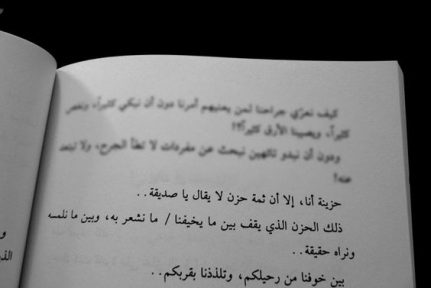 كيف نعرّي جراحنا لمن يعنيهم أمرنا دون أن نبكي كثيراً، ونخسر
كثيراً، ويصيبنا الأرق كثيراً؟!
ودون أن نبدو تائهين نبحث عن مفردات لا تطأ الجرح، ولا تبتعد
عنه!
حزينة أنا، إلا أن ثمة حزن لا يقال يا صديقة..
ذلك الحزن الذي يقف بين ما يخيفنا / ما نشعر به، وبين ما نلمسه
ونراه حقيقة..
بين خوفنا من رحيلكم، وتلذذنا بقربكم..